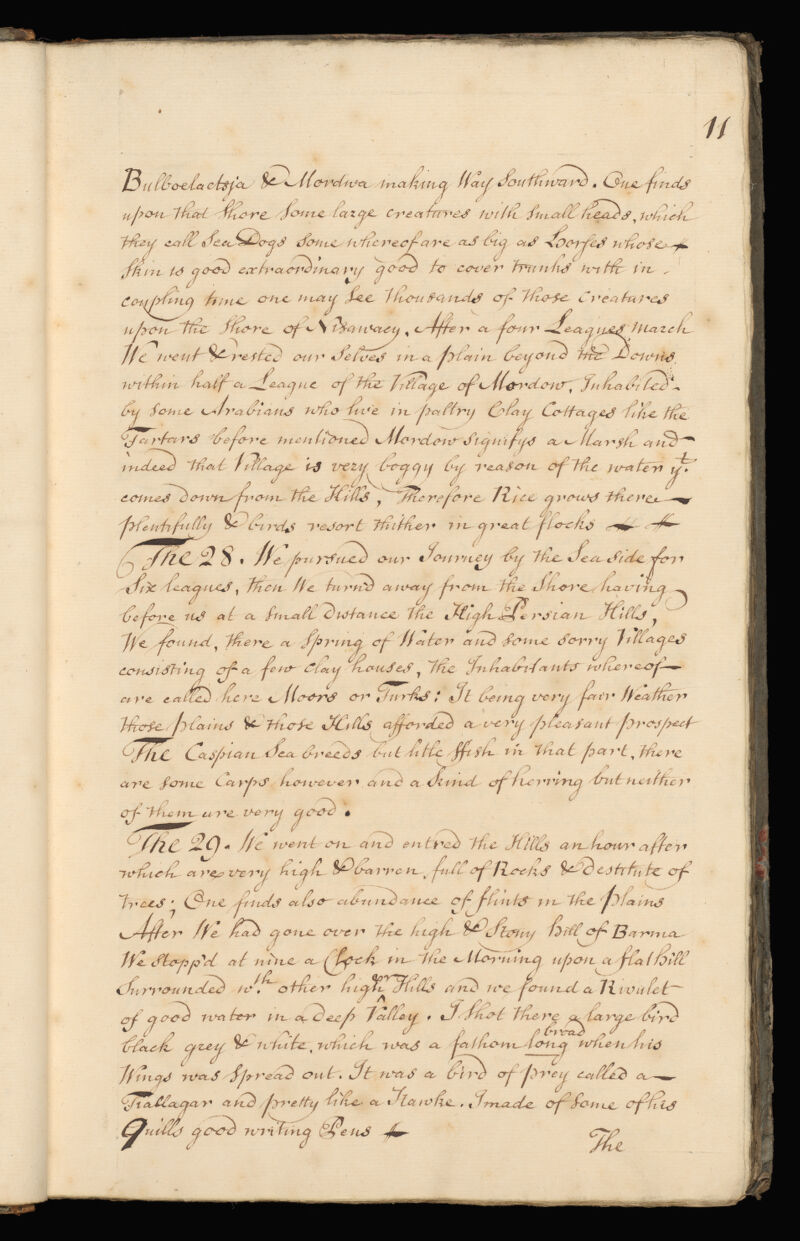 11
Bulboelactsja & Mordwa making Way Southward. One finds
upon that Shore Some large creatures with Small heads, which
they call Sea Dogs some whereof are as big as Horses whose
Skin is good extraordinary good to cover trunks with in
coupling time one may See thousands of those Creatures
upon the Shore of Nisawaey. After a four Leagues march
We went & rested our Selves in a plain beyond the Downs
within half a League of the Village of Mordow. Inhabited
by Some Arabians who live in paltry Clay Cottages like the
Tartars before mentioned Mordow signifys a Marsh and
indeed that Village is very boggy by reason of the water yt.
comes down from the Hills, Therefore Rice grows there
plentifully & birds resort thither in great flocks
The 28. We pursued our Journey by the Sea side for
Six leagues, then We turn'd away from the Shore having
before us at a Small distance the High Persian Hills,
We found, there a Spring of Water and some sorry Villages
consisting of a few clay houses, the Inhabitants whereof
are called here Moors or Turks: It being very fair Weather
those plains & those Hills afforded a very pleasant prospect
The Caspian Sea breeds but litle ffish in that part, there
are some Carps however and a kind of herring but neither
of them are very good.
The 29. We went on and entred the Hills an hour after
which are very high & barren, full of Rocks & destitute of
trees; One finds also abundance of flints in the plains
After We had gone over the high & Stony hill of Barma
We Stopp'd at nine a Clock in the Morning upon a flat hill
Surrounded wth. other highr Hills and we found a Rivulet
of good water in a deep Valley. I Shot there a large bird
black grey & white, which was a fathom long broad when his
Wings was Spread out. It was a bird of prey called a
Tiallagar and pretty like a Hawke. I made of Some of his
Quills good writing Pens
The